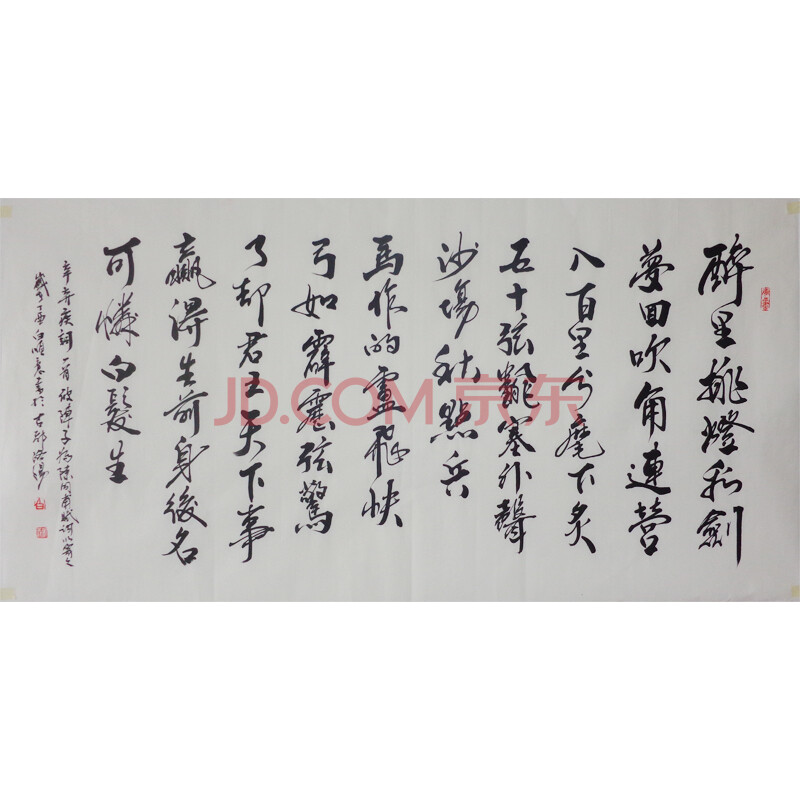 醉里挑燈看劍
夢回吹角連營
八百里分麾下炙
五十弦翻塞外聲
沙場秋點兵
馬作的盧飛快
弓如霹靂弦驚
了却君王天下事
贏得生前身後名
可憐白髮生
辛弃疾詞一首破陣子為陳同甫賦詩以寄之
歲于丁酉白順意書於古都洛陽
白
JD.COM 京东